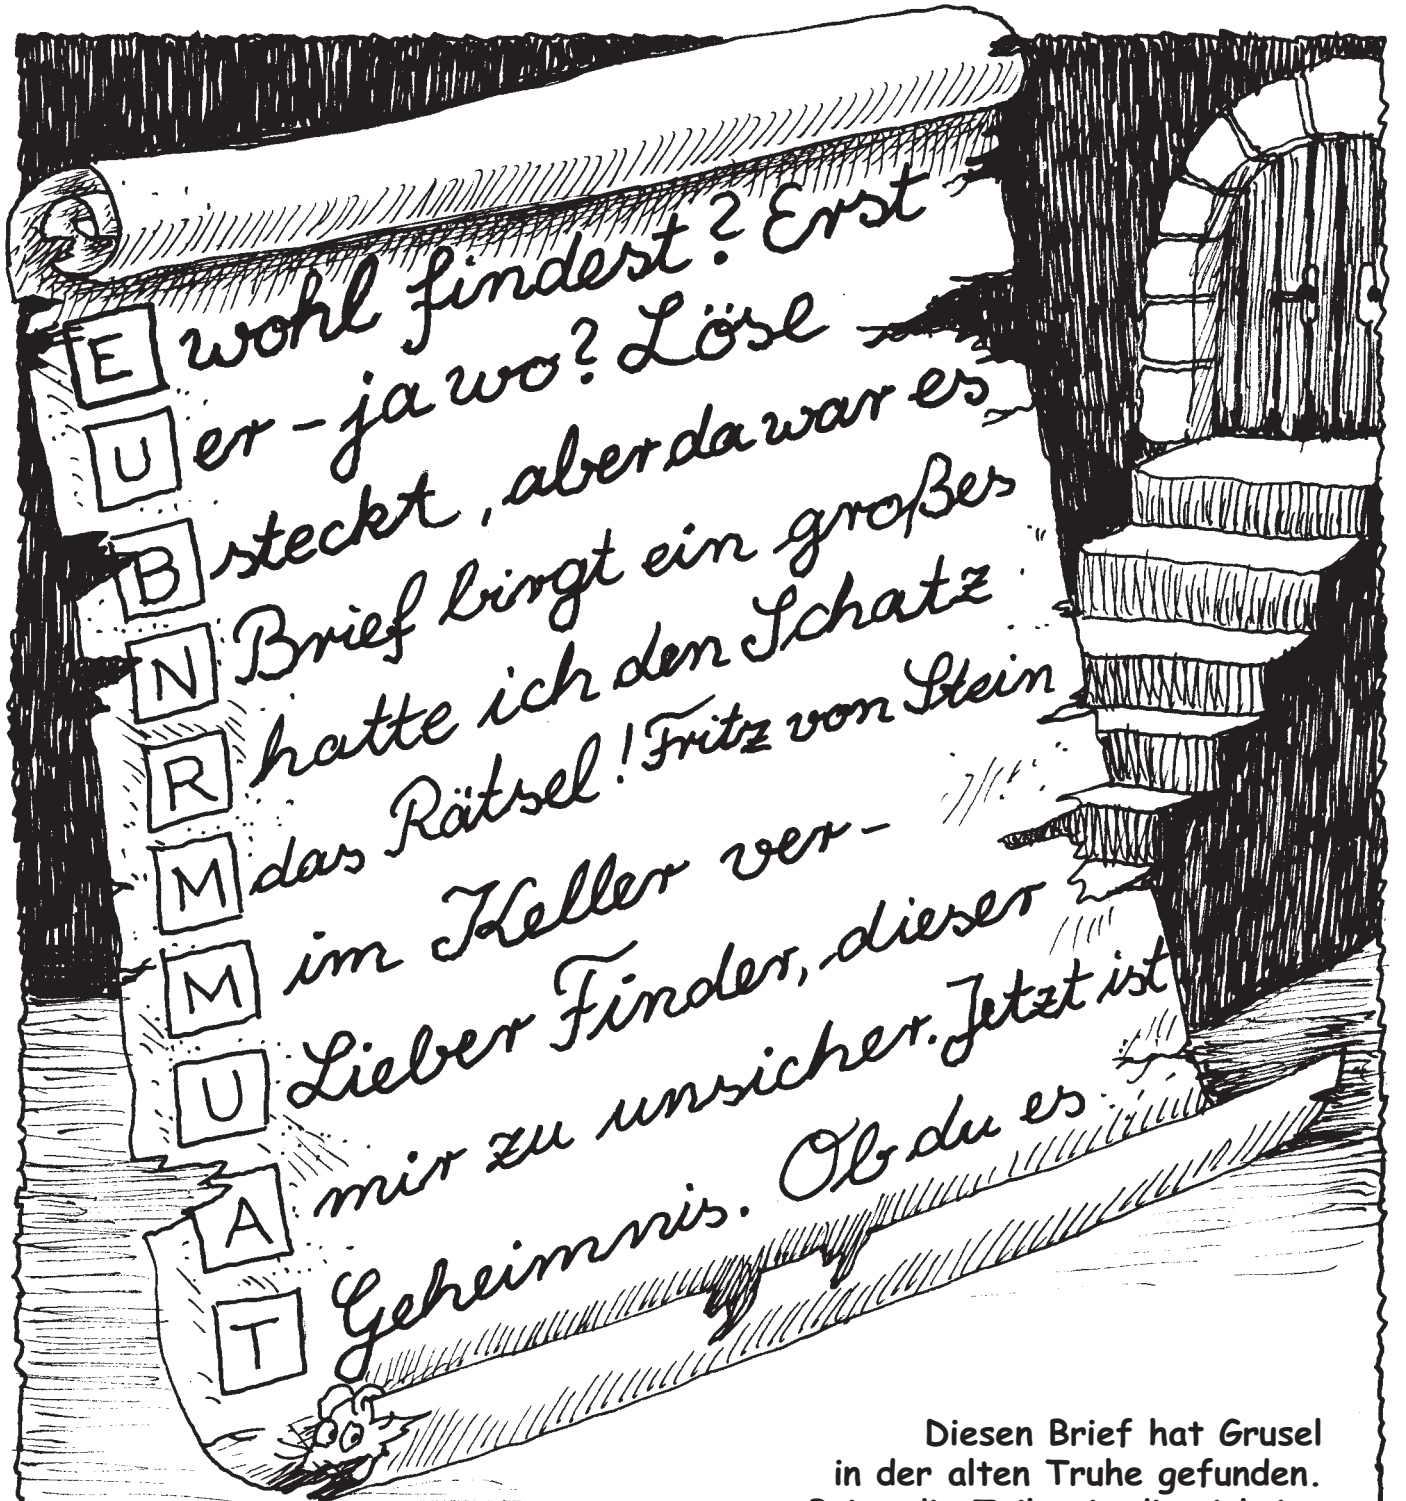 E wohl findest? Erst
U er – ja wo? Löse
B steckt, aber da war es
N Brief birgt ein großes
R hatte ich den Schatz
M das Rätsel! Fritz von Stein
M im Keller ver-
U Lieber Finder, dieser
A mir zu unsicher. Jetzt ist
T Geheimnis. Ob du es
Diesen Brief hat Grusel
in der alten Truhe gefunden.